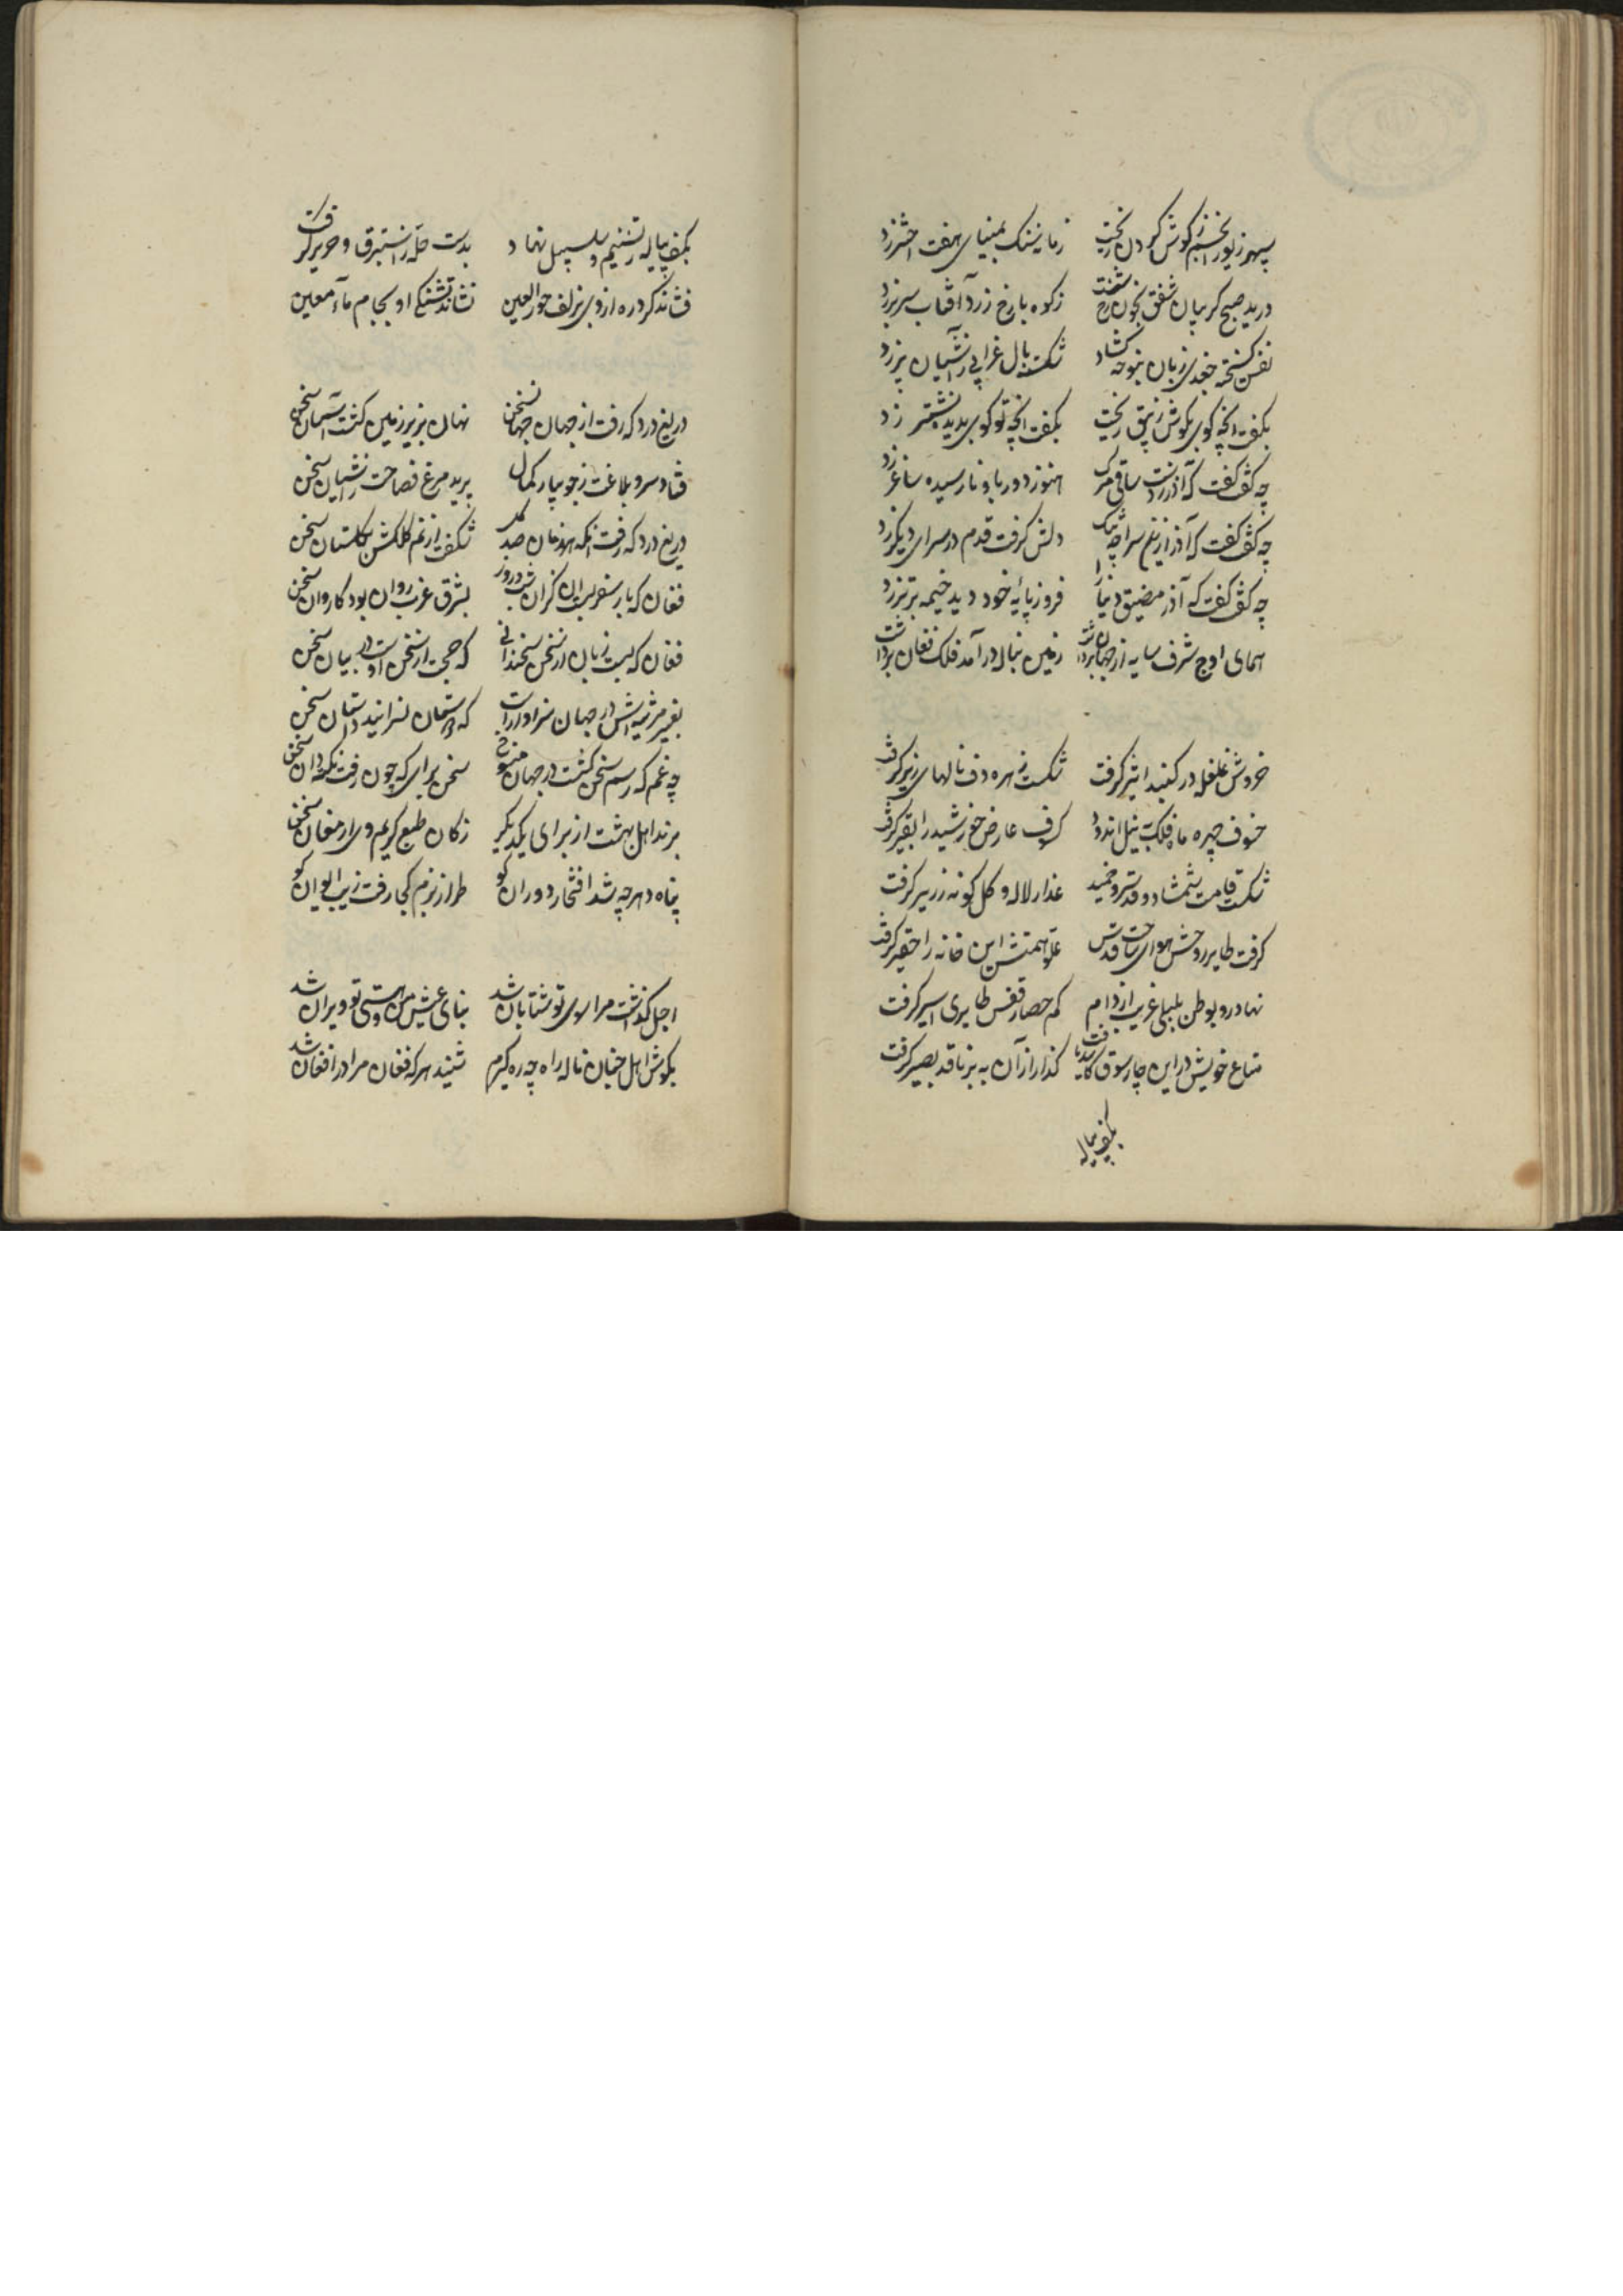 سپهر زیور انجم ز گوش گردون ریخت زمانه سنگ بمینای هفت اختر زد
درید صبح گریبان شفق بخون رخ شست ز کوه با رخ زرد آفتاب سر برزد
نفس گسسته جغدی زبان بنوحه گشاد شکسته بال غرابی ز آشیان پر زد
بگفت آنچه گویی بگوش زیبق ریخت بگفت آنچه تو گویی بدیده نشتر زد
چه گفت گفت که آذر ز دست ساقی مرگ هنوز دور باو نارسیده ساغر زد
چه گفت گفت که آذر ازین سراچه تنگ دلش گرفت قدم در سرای دیگر زد
چه گفت گفت که آذر مضیق دنیا را فروز پایه خود دید خیمه برتر زد
همای اوج شرف سایه از جهان برداشت زمین بناله درآمد فلک فغان برداشت
خروش غلغله در گنبد اثیر گرفت شکست زهره دف نالهای زیر گرفت
خسوف چهره ماه فلک بنیل اندود کسوف عارض خورشید را بقیر گرفت
شکست قامت شمشاد و قد سرو خمید عذار لاله و گل گونه زریر گرفت
گرفت طایر روحش هوای ساحت قدس علو همتش این خانه را حقیر گرفت
نهاد رو بوطن بلبلی غریب از دام کم حصار قفس طایری اسیر گرفت
متاع خویش در این چارسوق کاسد یافت گذار از آن به بر ناقد بصیر گرفت
بکف پیاله
بکف پیاله ز تسنیم و سلسبیل نهاد بدست حله ز استبرق و حریر گرفت
فشاند گرد ره از وی بزلف حورالعین نشاند تشنگی او بجام ماء معین
دریغ و درد که رفت از جهان جهان سخن نهان بزیر زمین گشت آسمان سخن
فتاد سرو بلاغت ز جویبار کمال پرید مرغ فصاحت ز آشیان سخن
دریغ و درد که رفت آنکه هر زمان صد گل شکفت از نم کلکش بگلستان سخن
فغان که بار سفر بست آن کزان شب و روز بشرق و غرب روان بود کاروان سخن
فغان که بست زبان از سخن سخندانی که حجت از سخن اوست در بیان سخن
بغیر مرثیه اش در جهان سزاوار است که داستان نسرایند داستان سخن
چه غم که رسم سخن گشت در جهان منسوخ سخن برای که چون رفت نکته دان سخن
برند اهل بهشت از برای یکدیگر ز کان طبع کریم وی ارمغان سخن
پناه دهر چه شد افتخار دوران کو طراز بزم کجا رفت زیب ایوان کو
اجل گذشت مرا سوی تو شتابان شد بنای عیش من و هستی تو ویران شد
بگوش اهل جنان ناله راه چه ره گیرم شنید هر که فغان مرا در افغان شد